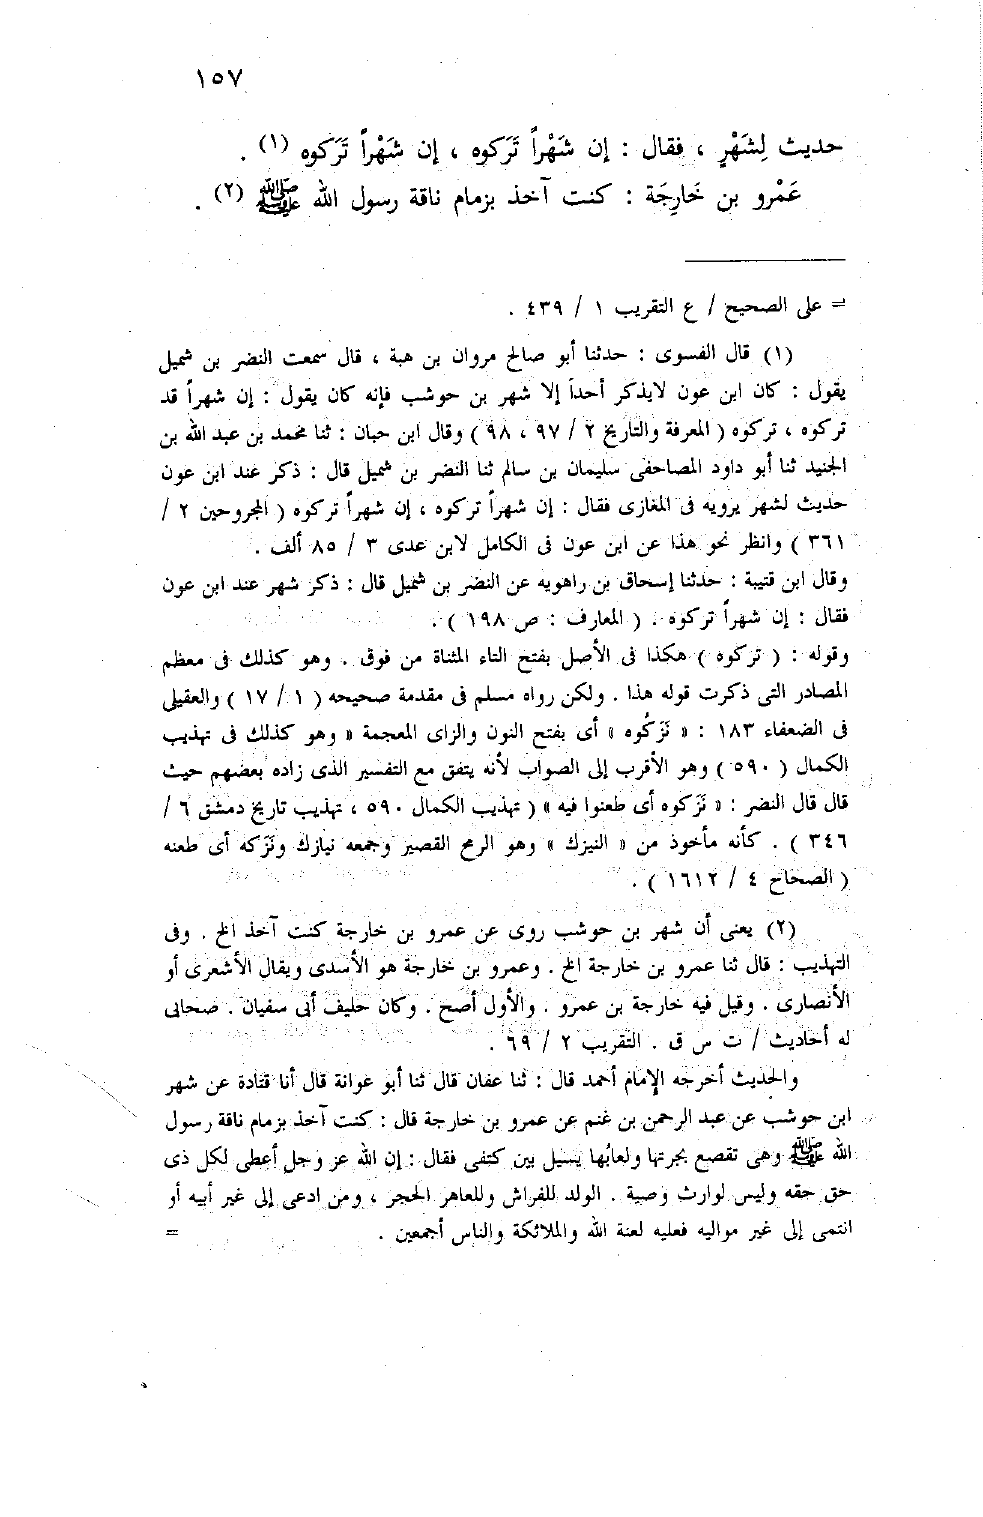 ١٥٧
حديث لِشَهْرٍ ، فقال : إن شَهْراً تَرَكوه ، إن شَهْراً تَرَكوه (١) .
عَمْرو بن خَارِجَة : كنت آخذ بزمام ناقة رسول الله ﷺ (٢) .
= على الصحيح / ع التقريب ١ / ٤٣٩ .
(١) قال الفسوى : حدثنا أبو صالح مروان بن هبة ، قال سمعت النضر بن شميل
يقول : كان ابن عون لايذكر أحداً إلا شهر بن حوشب فإنه كان يقول : إن شهراً قد
تركوه ، تركوه ( المعرفة والتاريخ ٢ / ٩٧ ، ٩٨ ) وقال ابن حبان : ثنا محمد بن عبد الله بن
الجنيد ثنا أبو داود المصاحفى سليمان بن سالم ثنا النضر بن شميل قال : ذكر عند ابن عون
حديث لشهر يرويه فى المغازى فقال : إن شهراً تركوه ، إن شهراً تركوه ( المجروحين ٢ /
٣٦١ ) وانظر نحو هذا عن ابن عون فى الكامل لابن عدى ٣ / ٨٥ ألف .
وقال ابن قتيبة : حدثنا إسحاق بن راهويه عن النضر بن شميل قال : ذكر شهر عند ابن عون
فقال : إن شهراً تركوه . ( المعارف : ص ١٩٨ ) .
وقوله : ( تركوه ) هكذا فى الأصل بفتح التاء المثناة من فوق . وهو كذلك فى معظم
المصادر التى ذكرت قوله هذا . ولكن رواه مسلم فى مقدمة صحيحه ( ١ / ١٧ ) والعقيلى
فى الضعفاء ١٨٣ : « نَزَكُوه » أى بفتح النون والزاى المعجمة « وهو كذلك فى تهذيب
الكمال ( ٥٩٠ ) وهو الأقرب إلى الصواب لأنه يتفق مع التفسير الذى زاده بعضهم حيث
قال قال النضر : « نَزَكوه أى طعنوا فيه » ( تهذيب الكمال ٥٩٠ ، تهذيب تاريخ دمشق ٦ /
٣٤٦ ) . كأنه مأخوذ من « النيزك » وهو الرمح القصير وجمعه نيازك ونَزَكه أى طعنه
( الصحاح ٤ / ١٦١٢ ) .
(٢) يعنى أن شهر بن حوشب روى عن عمرو بن خارجة كنت آخذ الخ . وفى
التهذيب : قال ثنا عمرو بن خارجة الخ . وعمرو بن خارجة هو الأسدى ويقال الأشعرى أو
الأنصارى . وقيل فيه خارجة بن عمرو . والأول أصح . وكان حليف أبى سفيان . صحابى
له أحاديث / ت س ق . التقريب ٢ / ٦٩ .
والحديث أخرجه الإمام أحمد قال : ثنا عفان قال ثنا أبو عوانة قال أنا قتادة عن شهر
ابن حوشب عن عبد الرحمن بن غنم عن عمرو بن خارجة قال : كنت آخذ بزمام ناقة رسول
الله ﷺ وهى تقصع بجرتها ولعابُها يسيل بين كتفى فقال : إن الله عز وجل أعطى لكل ذى
حق حقه وليس لوارث وصية . الولد للفراش وللعاهر الحجر ، ومن ادعى إلى غير أبيه أو
انتمى إلى غير مواليه فعليه لعنة الله والملائكة والناس أجمعين . =